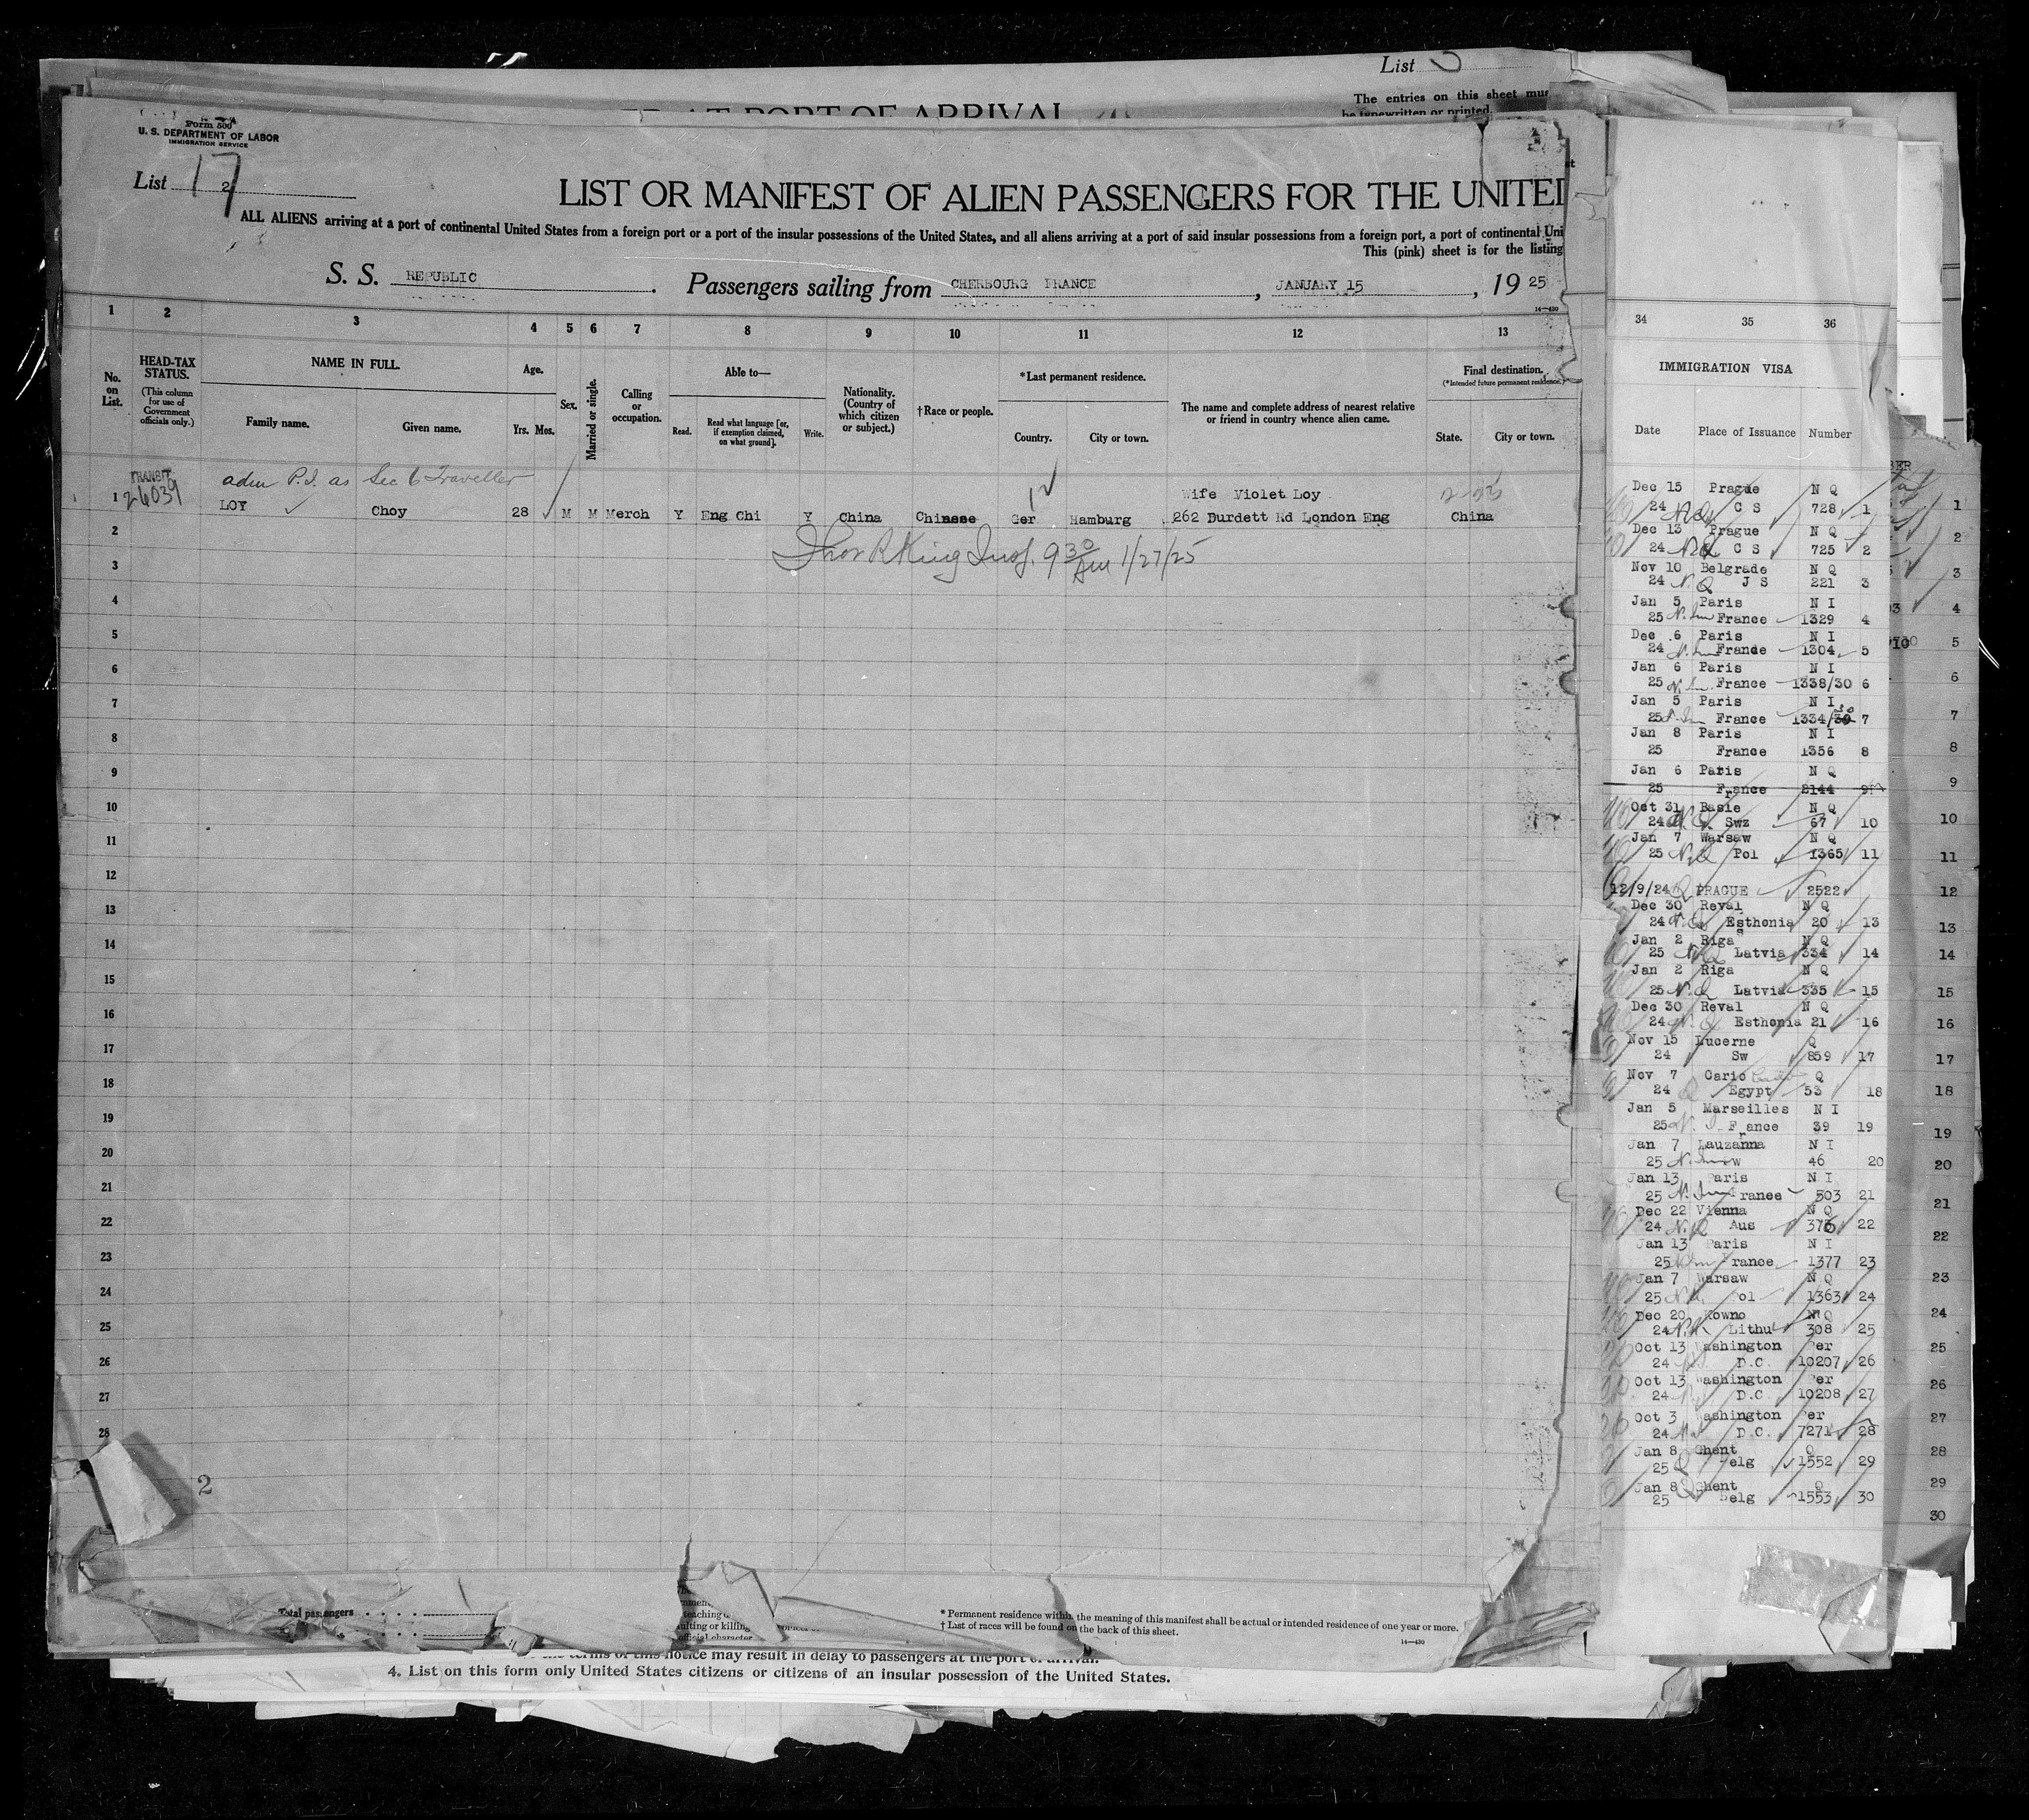 List
The entries on this sheet mus
be typewritten or printed.
AT PORT OF ARRIVAL
Form 500
U. S. DEPARTMENT OF LABOR
IMMIGRATION SERVICE
List 17 2
LIST OR MANIFEST OF ALIEN PASSENGERS FOR THE UNITED
ALL ALIENS arriving at a port of continental United States from a foreign port or a port of the insular possessions of the United States, and all aliens arriving at a port of said insular possessions from a foreign port, a port of continental Uni
This (pink) sheet is for the listing
S. S. REPUBLIC . Passengers sailing from CHERBOURG FRANCE , JANUARY 15 , 19 25
14—430
1 2 3 4 5 6 7 8 9 10 11 12 13
No. on List.
HEAD-TAX STATUS.
(This column for use of Government officials only.)
NAME IN FULL.
Family name. Given name.
Age.
Yrs. Mos.
Sex.
Married or single.
Calling or occupation.
Able to—
Read. Read what language [or, if exemption claimed, on what ground]. Write.
Nationality. (Country of which citizen or subject.)
†Race or people.
*Last permanent residence.
Country. City or town.
The name and complete address of nearest relative or friend in country whence alien came.
Final destination.
(*Intended future permanent residence.)
State. City or town.
TRANSIT
adm P.I. as Sec 6 Traveller
Wife Violet Loy
1 26039 LOY Choy 28 M M Merch Y Eng Chi Y China Chinese Ger Hamburg 262 Burdett Rd London Eng China
2
King Insp. 9 30 Am 1/27/25
3
4
5
6
7
8
9
10
11
12
13
14
15
16
17
18
19
20
21
22
23
24
25
26
27
28
2
Total passengers
* Permanent residence within the meaning of this manifest shall be actual or intended residence of one year or more.
† List of races will be found on the back of this sheet.
14—430
teaching
official character
terms of this notice may result in delay to passengers at the port of arrival.
4. List on this form only United States citizens or citizens of an insular possession of the United States.
34 35 36
IMMIGRATION VISA
Date Place of Issuance Number
Dec 15 Prague N Q
24 N.Q. C S 728 1
Dec 13 Prague N Q
24 N.Q. C S 725 2
Nov 10 Belgrade N Q
24 N.Q J S 221 3
Jan 5 Paris N I
25 N.Im France 1329 4
Dec 6 Paris N I
24 N.Im France 1304 5
Jan 6 Paris N I
25 N.Im France 1338/30 6
Jan 5 Paris N I
25 N.Im France 1334/30 7
Jan 8 Paris N I
25 France 1356 8
Jan 6 Paris N Q
25 France 2144 9
Oct 31 Basle N Q
24 N.Q. Swz 67 10
Jan 7 Warsaw N Q
25 N.Q Pol 1365 11
12/9/24 Q PRAGUE 2522
Dec 30 Reval N Q
24 N.Q Esthonia 20 13
Jan 2 Riga N Q
25 N.Q Latvia 334 14
Jan 2 Riga N Q
25 N.Q Latvia 335 15
Dec 30 Reval N Q
24 N.Q Esthonia 21 16
Nov 15 Lucerne Q
24 Sw 859 17
Nov 7 Cario Q
24 Q Egypt 53 18
Jan 5 Marseilles N I
25 N.I France 39 19
Jan 7 Lauzanna N I
25 N.Im w 46 20
Jan 13 Paris N I
25 N.Im France 503 21
Dec 22 Vienna N Q
24 N.Q Aus 376 22
Jan 13 Paris N I
25 N.Im France 1377 23
Jan 7 Warsaw N Q
25 N.Q. Pol 1363 24
Dec 20 Kowno N Q
24 Lithu 308 25
Oct 13 Washington Per
24 D.C. 10207 26
Oct 13 Washington Per
24 D.C 10208 27
Oct 3 Washington Per
24 D.C. 7271 28
Jan 8 Ghent Q
25 Q Belg 1552 29
Jan 8 Ghent Q
25 Belg 1553 30
1
2
3
4
5
6
7
8
9
10
11
12
13
14
15
16
17
18
19
20
21
22
23
24
25
26
27
28
29
30